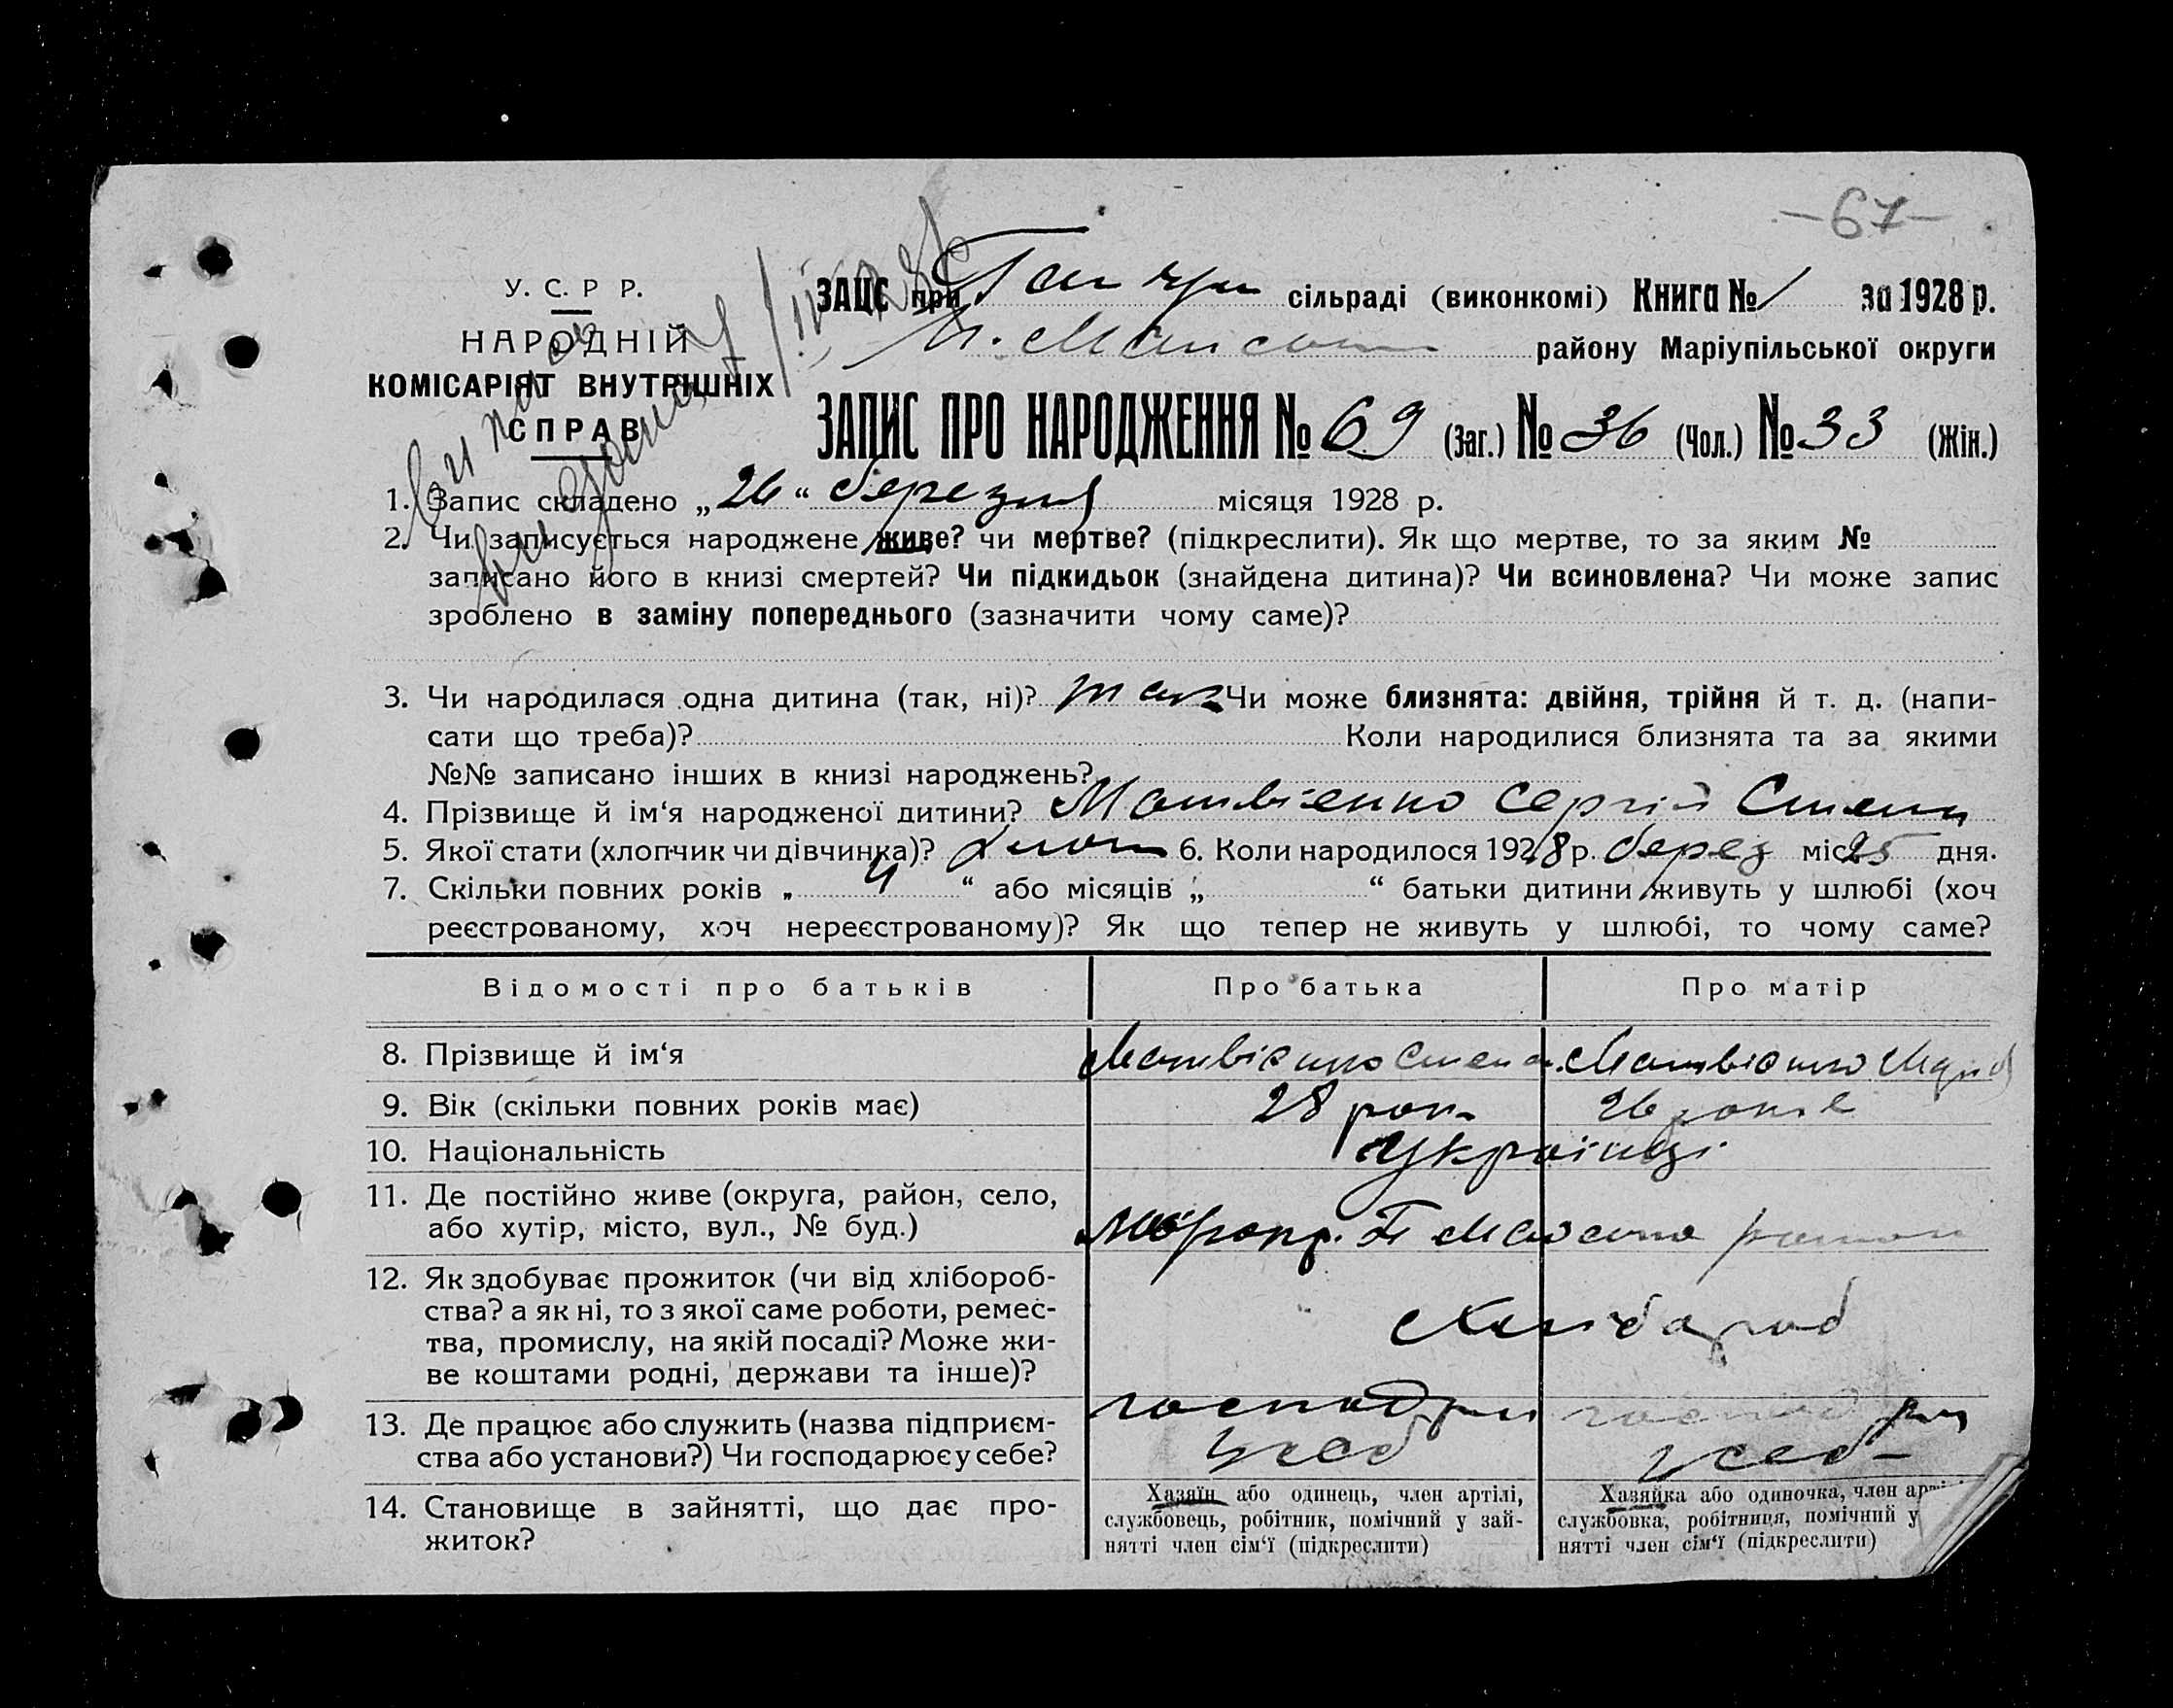 -67-
У. С. Р Р.
ЗАЦС при сільраді (виконкомі) Книга № 1 за 1928 р.
НАРОДНІЙ
району Маріупільської округи
КОМІСАРІЯТ ВНУТРІШНІХ
СПРАВ
ЗАПИС ПРО НАРОДЖЕННЯ № 69 (Заг.) № 36 (Чол.) № 33 (Жін.)
1. Запис складено „26“ березня місяця 1928 р.
2. Чи записується народжене живе? чи мертве? (підкреслити). Як що мертве, то за яким №
записано його в книзі смертей? Чи підкидьок (знайдена дитина)? Чи всиновлена? Чи може запис
зроблено в заміну попереднього (зазначити чому саме)?
3. Чи народилася одна дитина (так, ні)? так Чи може близнята: двійня, трійня й т. д. (напи-
сати що треба)? Коли народилися близнята та за якими
№№ записано інших в книзі народжень?
4. Прізвище й ім‘я народженої дитини? Матвієнко Сергій Степ
5. Якої стати (хлопчик чи дівчинка)? 6. Коли народилося 1928 р. берез міс 25 дня.
7. Скільки повних років „ 4 “ або місяців „ “ батьки дитини живуть у шлюбі (хоч
реєстрованому, хоч нереєстрованому)? Як що тепер не живуть у шлюбі, то чому саме?
Відомості про батьків Про батька Про матір
8. Прізвище й ім‘я Матвієнко Степан Матвієнко Марія
9. Вік (скільки повних років має) 28 рок 26 років
10. Національність Українці
11. Де постійно живе (округа, район, село,
або хутір, місто, вул., № буд.)
12. Як здобуває прожиток (чи від хлібороб-
ства? а як ні, то з якої саме роботи, ремес-
тва, промислу, на якій посаді? Може жи-
ве коштами родні, держави та інше)?
Хлібороб
13. Де працює або служить (назва підприєм-
ства або установи?) Чи господарює у себе?
господрои господрои
у себ у себ
14. Становище в зайнятті, що дає про-
житок?
Хазяїн або одинець, член артілі,
службовець, робітник, помічний у зай-
нятті член сім‘ї (підкреслити)
Хазяйка або одиночка, член арті
службовка, робітниця, помічний у
нятті член сім‘ї (підкреслити)